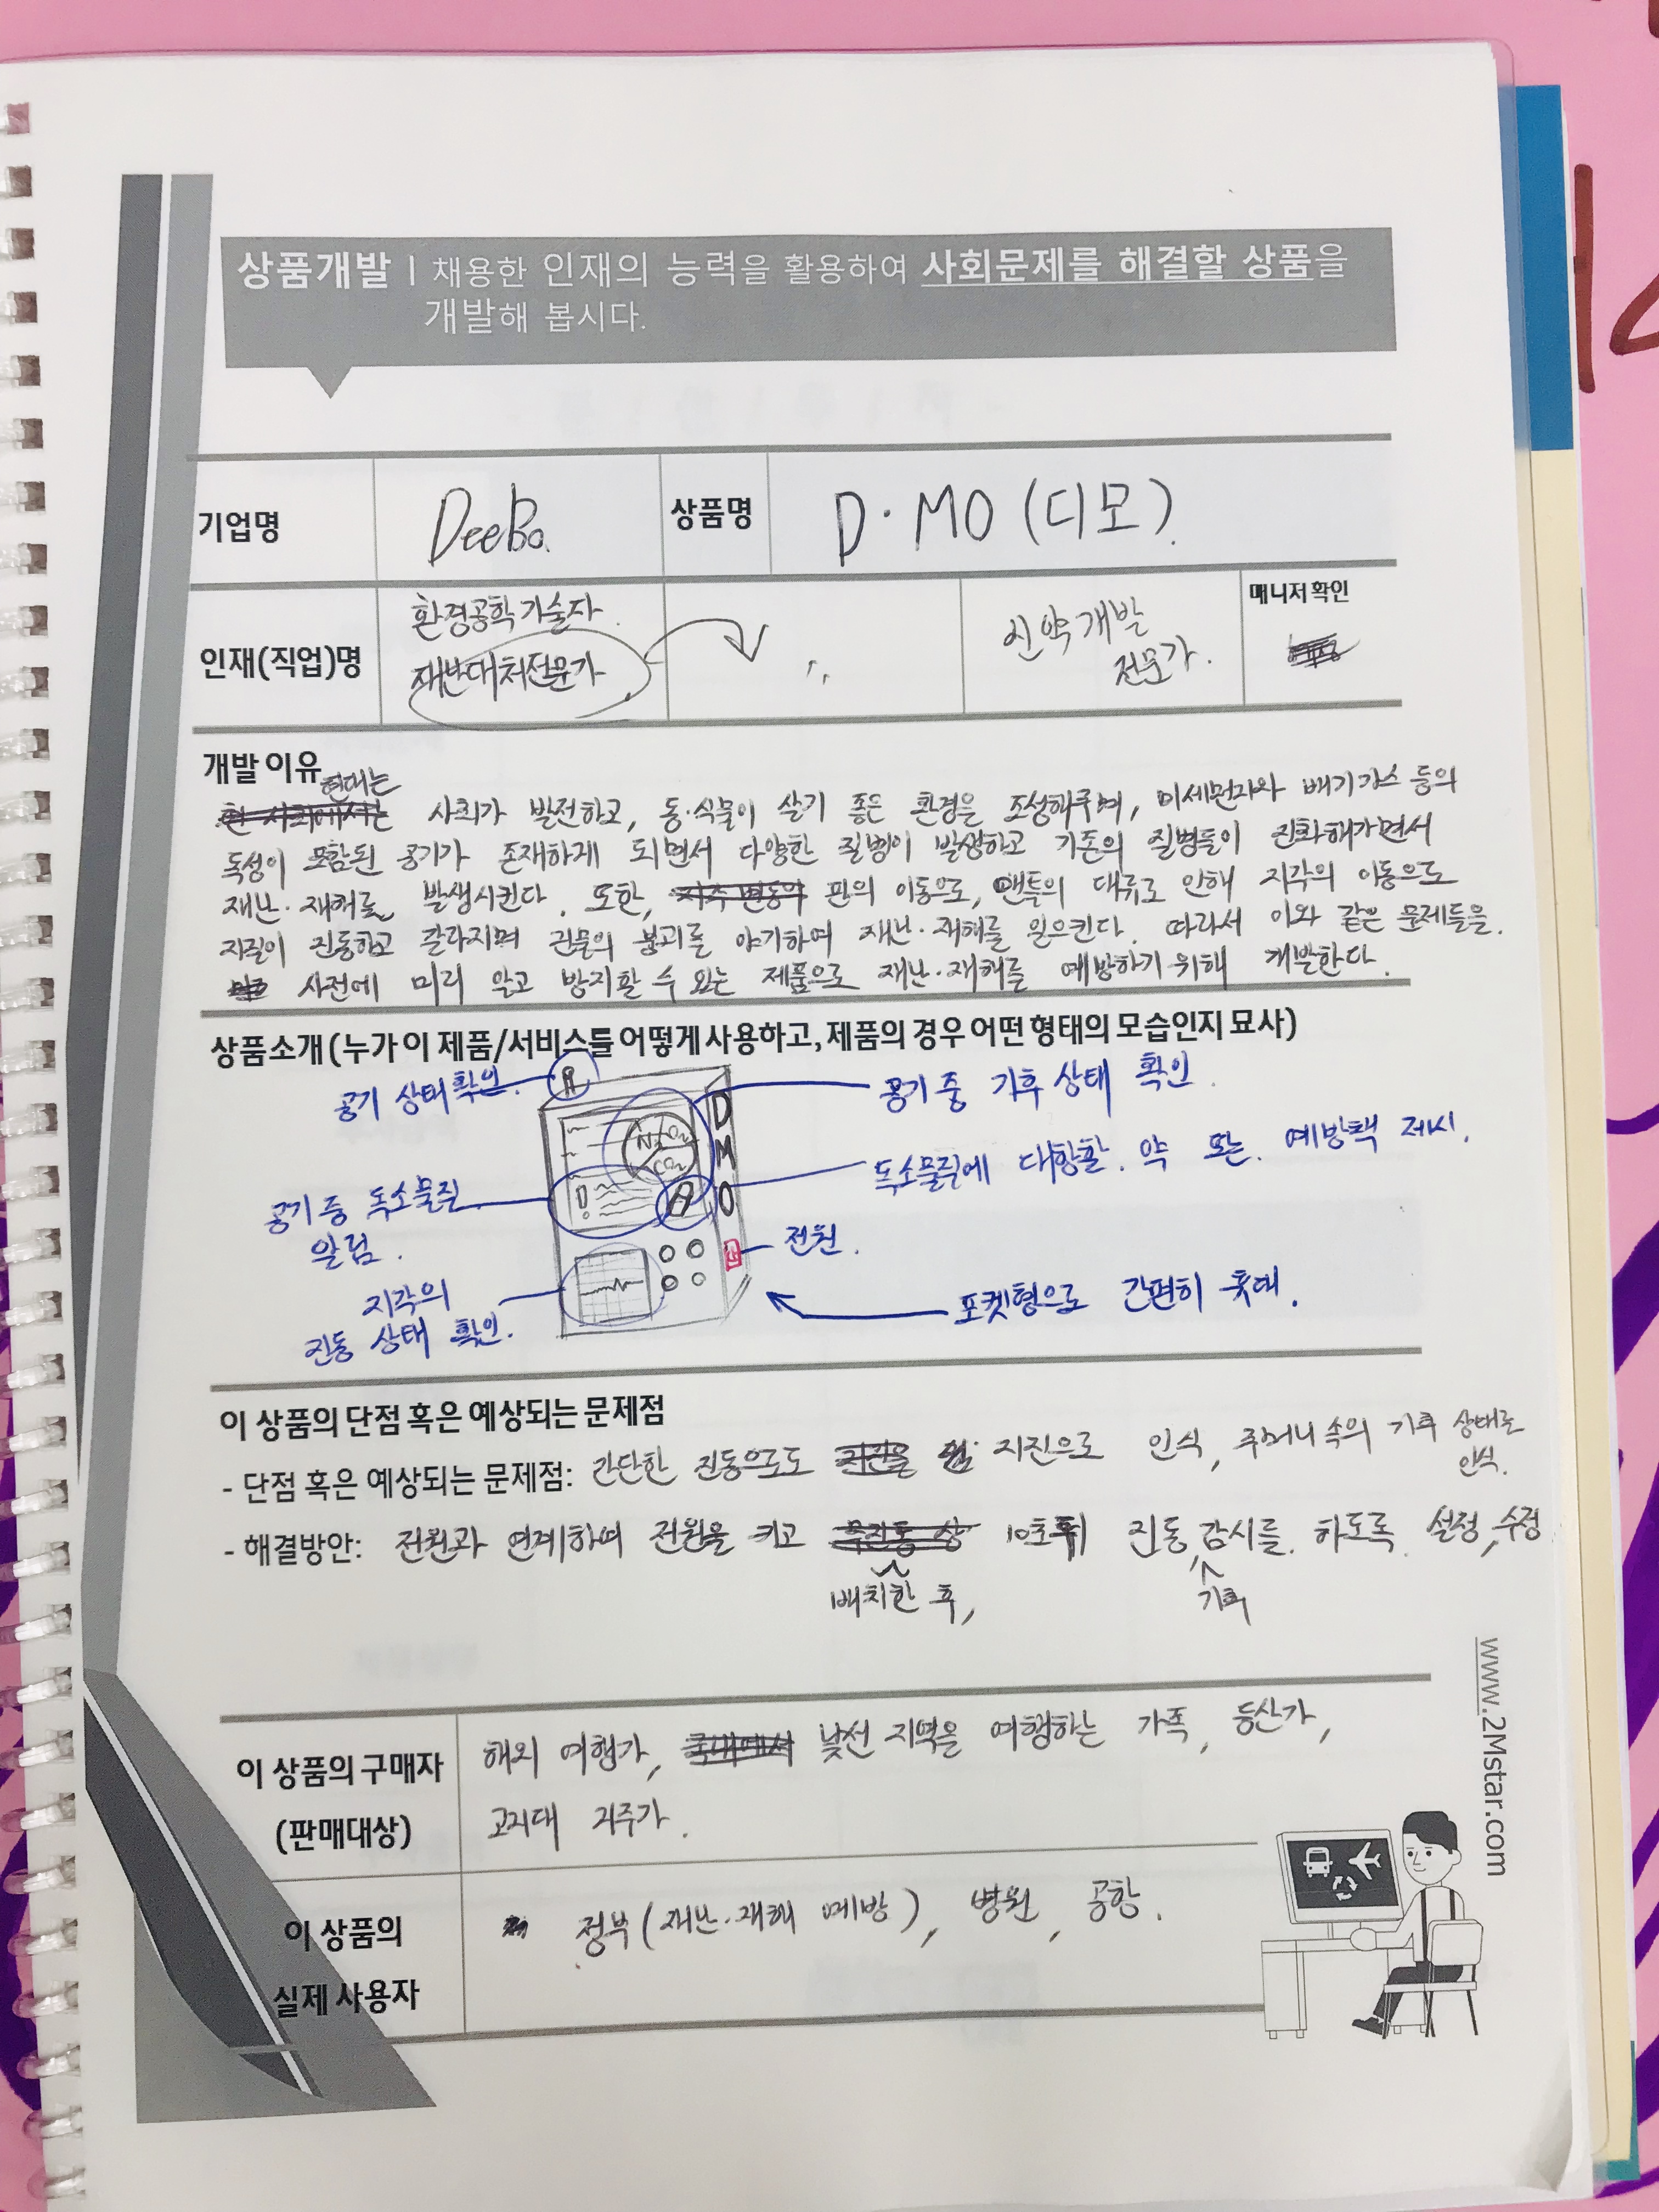 상품개발 | 채용한 인재의 능력을 활용하여 사회문제를 해결할 상품을
개발해 봅시다.
기업명 DeeBo. 상품명 D·MO (디모).
인재(직업)명 환경공학기술자. 재난대처전문가 신약개발 전문가. 매니저 확인
개발 이유
현대는 사회가 발전하고, 동·식물이 살기 좋은 환경을 조성해주며, 미세먼지와 배기가스 등의
독성이 포함된 공기가 존재하게 되면서 다양한 질병이 발생하고 기존의 질병들이 진화해가면서
재난·재해를 발생시킨다. 또한, 판의 이동으로, 맨틀의 대류로 인해 지각의 이동으로
지질이 진동하고 갈라지며 건물의 붕괴를 야기하여 재난·재해를 일으킨다. 따라서 이와 같은 문제들을
사전에 미리 알고 방지할 수 있는 제품으로 재난·재해를 예방하기 위해 개발한다.
상품소개 (누가 이 제품/서비스를 어떻게 사용하고, 제품의 경우 어떤 형태의 모습인지 묘사)
공기 상태 확인.
공기 중 기후 상태 확인.
N₂ O₂ CO₂
DMO
독소물질에 대항할 약 또는 예방책 제시.
공기 중 독소물질
알림.
!
전원.
지각의
진동 상태 확인.
포켓형으로 간편히 휴대.
이 상품의 단점 혹은 예상되는 문제점
- 단점 혹은 예상되는 문제점: 간단한 진동으로도 지진으로 인식, 주머니 속의 기후 상태로
인식.
- 해결방안: 전원과 연계하여 전원을 키고 10초 뒤 진동 감시를 하도록 설정, 수정
배치한 후, 기후
이 상품의 구매자
(판매대상)
해외 여행가, 낯선 지역을 여행하는 가족, 등산가,
고지대 거주자.
이 상품의
실제 사용자
정부 (재난·재해 예방), 병원, 공항.
www.2Mstar.com